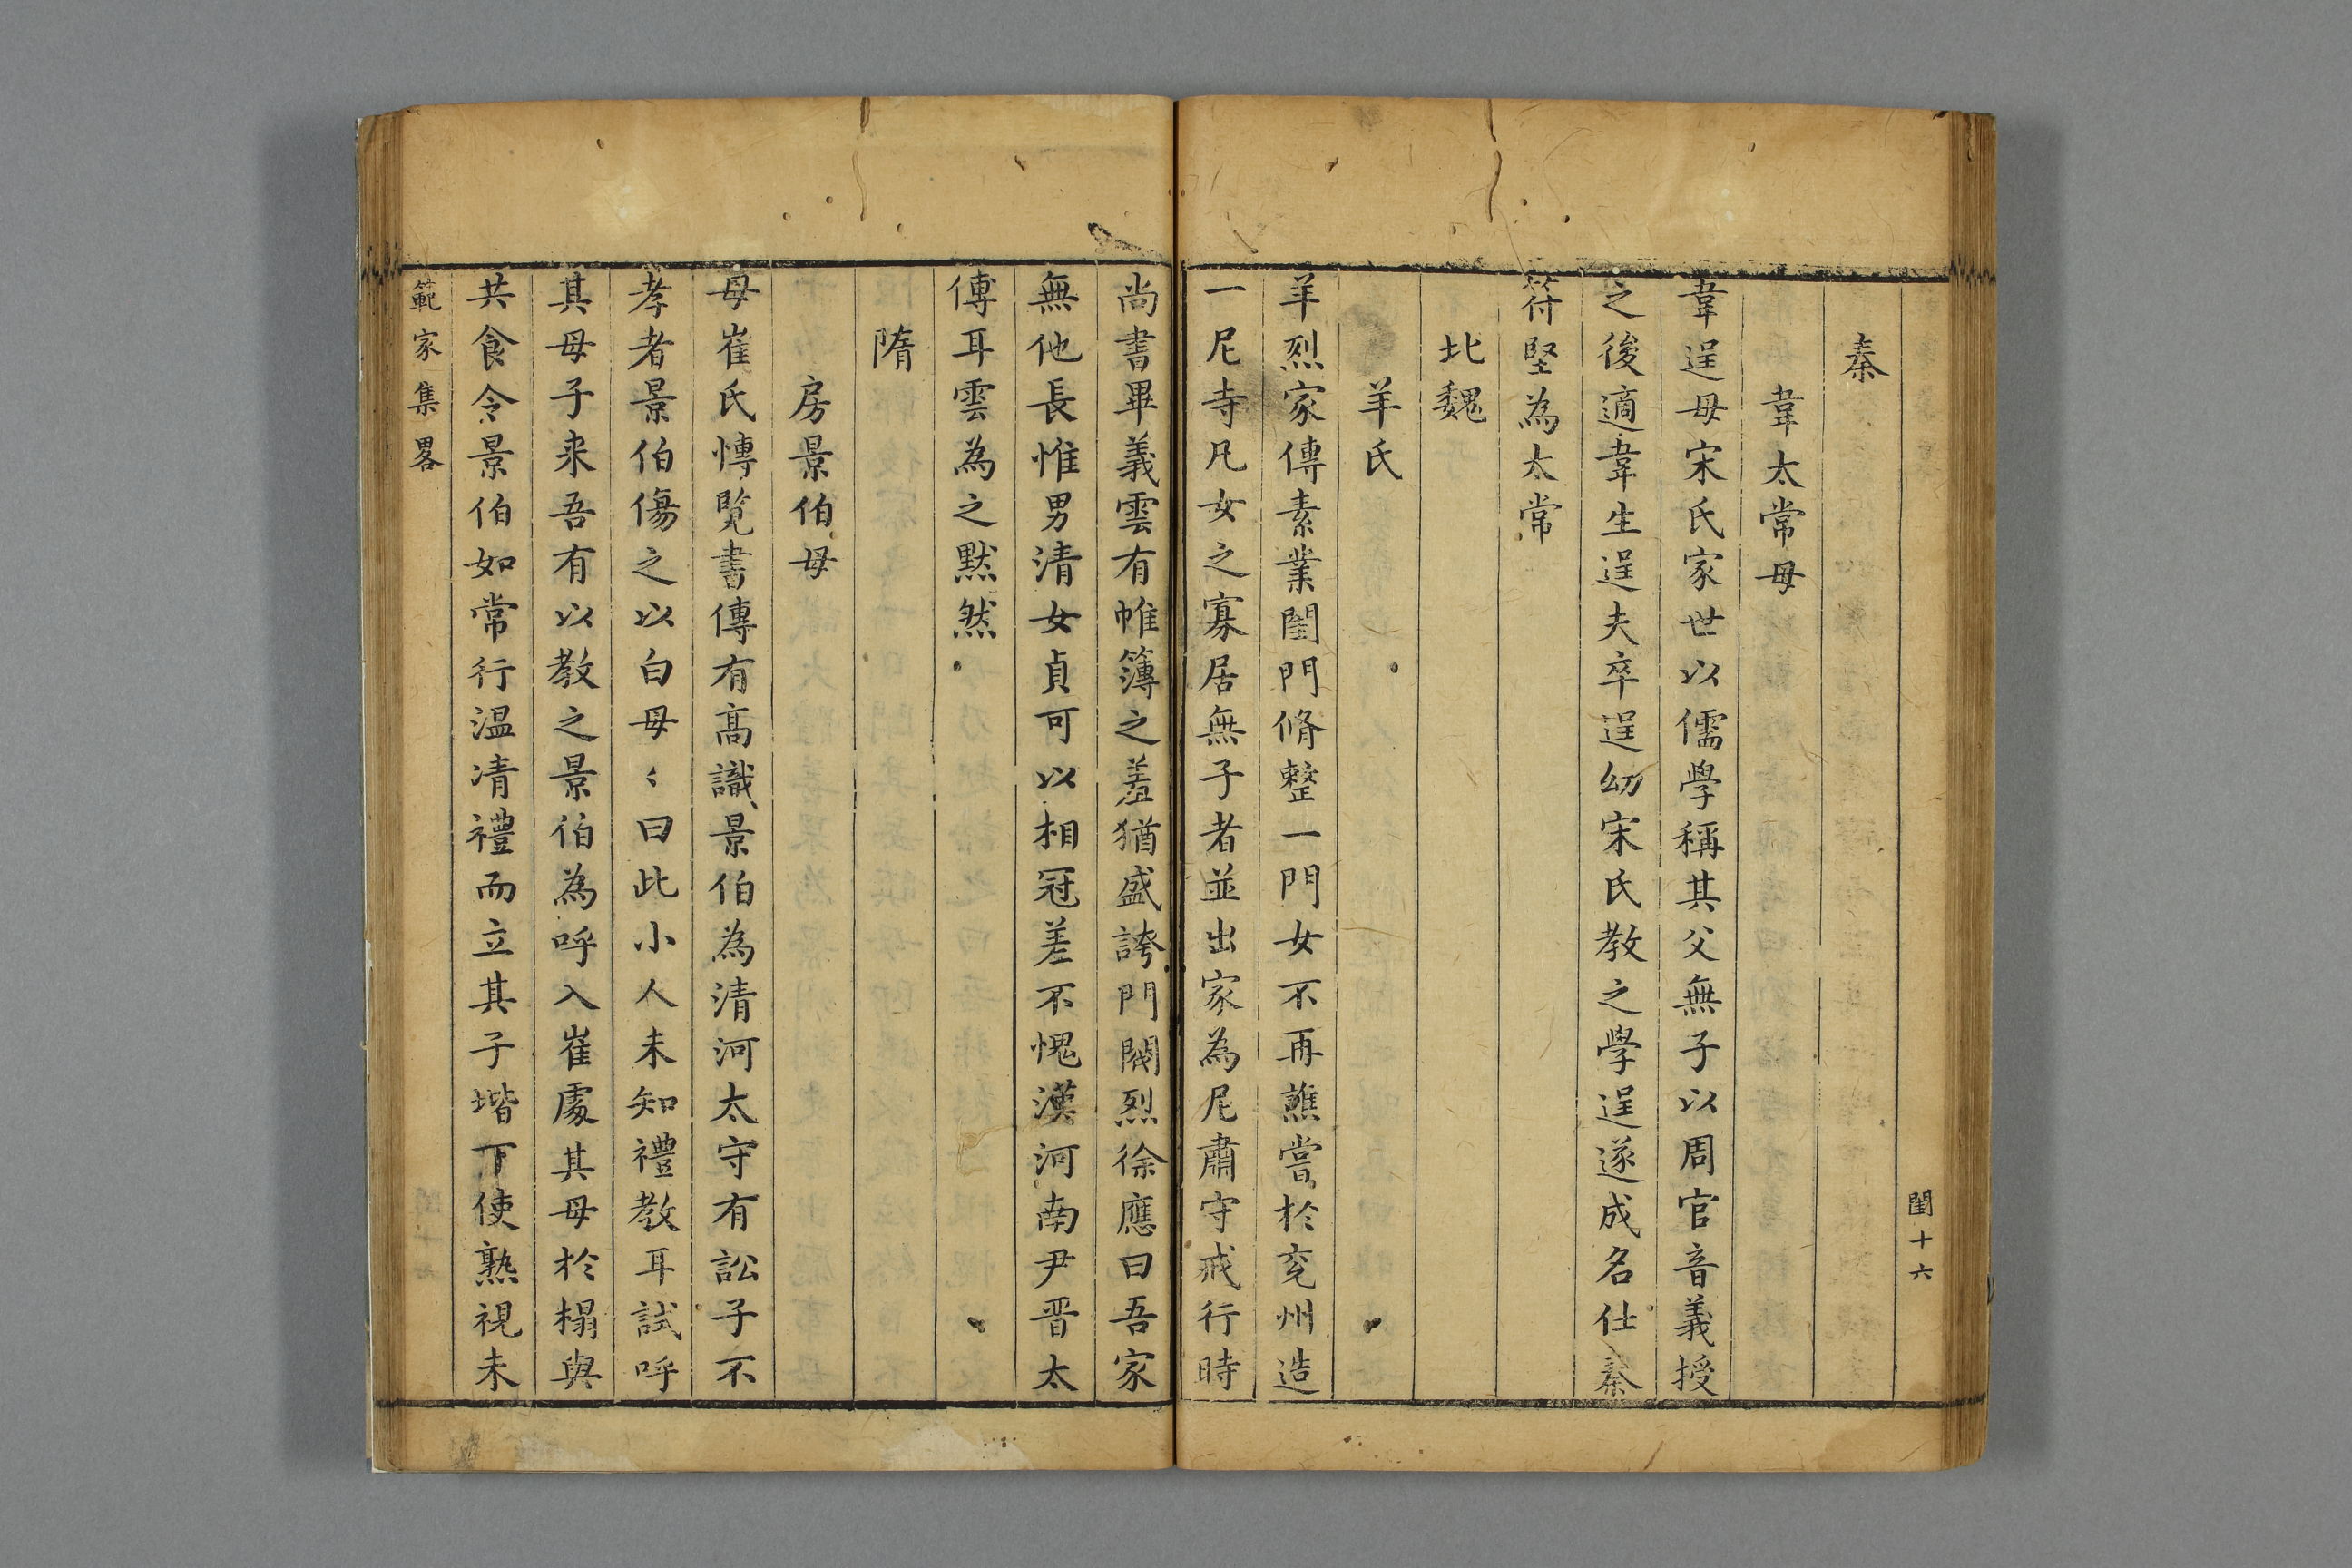 閨十六
秦
韋太常母
韋逞母宋氏家世以儒學稱其父無子以周官音義授
之後適韋生逞夫卒逞幼宋氏教之學逞遂成名仕秦
苻堅為太常
北魏
羊氏
羊烈家傳素業閨門脩整一門女不再醮嘗於兗州造
一尼寺凡女之寡居無子者並出家為尼肅守戒行時
尚書畢義雲有帷簿之羞猶盛誇門閥烈徐應曰吾家
無他長惟男清女貞可以相冠差不愧漢河南尹晋太
傅耳雲為之默然
隋
房景伯母
母崔氏愽覧書傳有髙識景伯為清河太守有訟子不
孝者景伯傷之以白母〻曰此小人未知禮教耳試呼
其母子来吾有以教之景伯為呼入崔處其母於榻與
共食令景伯如常行温清禮而立其子堦下使熟視未
範家集畧